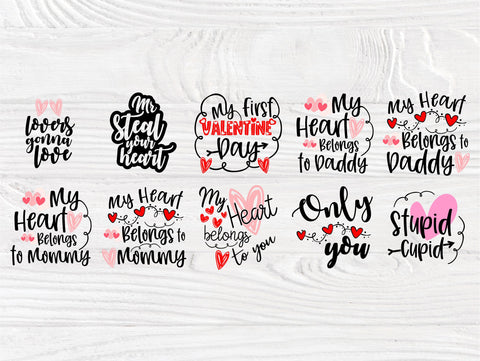 lovers
gonna
love
Mr
Steal
your
heart
My first
VALENTINE
Day
My
Heart
Belongs
to Daddy
My Heart
Belongs to
Daddy
My
Heart
Belongs
to Mommy
My Heart
Belongs to
Mommy
My
Heart
belongs
to you
Only
you
Stupid
Cupid